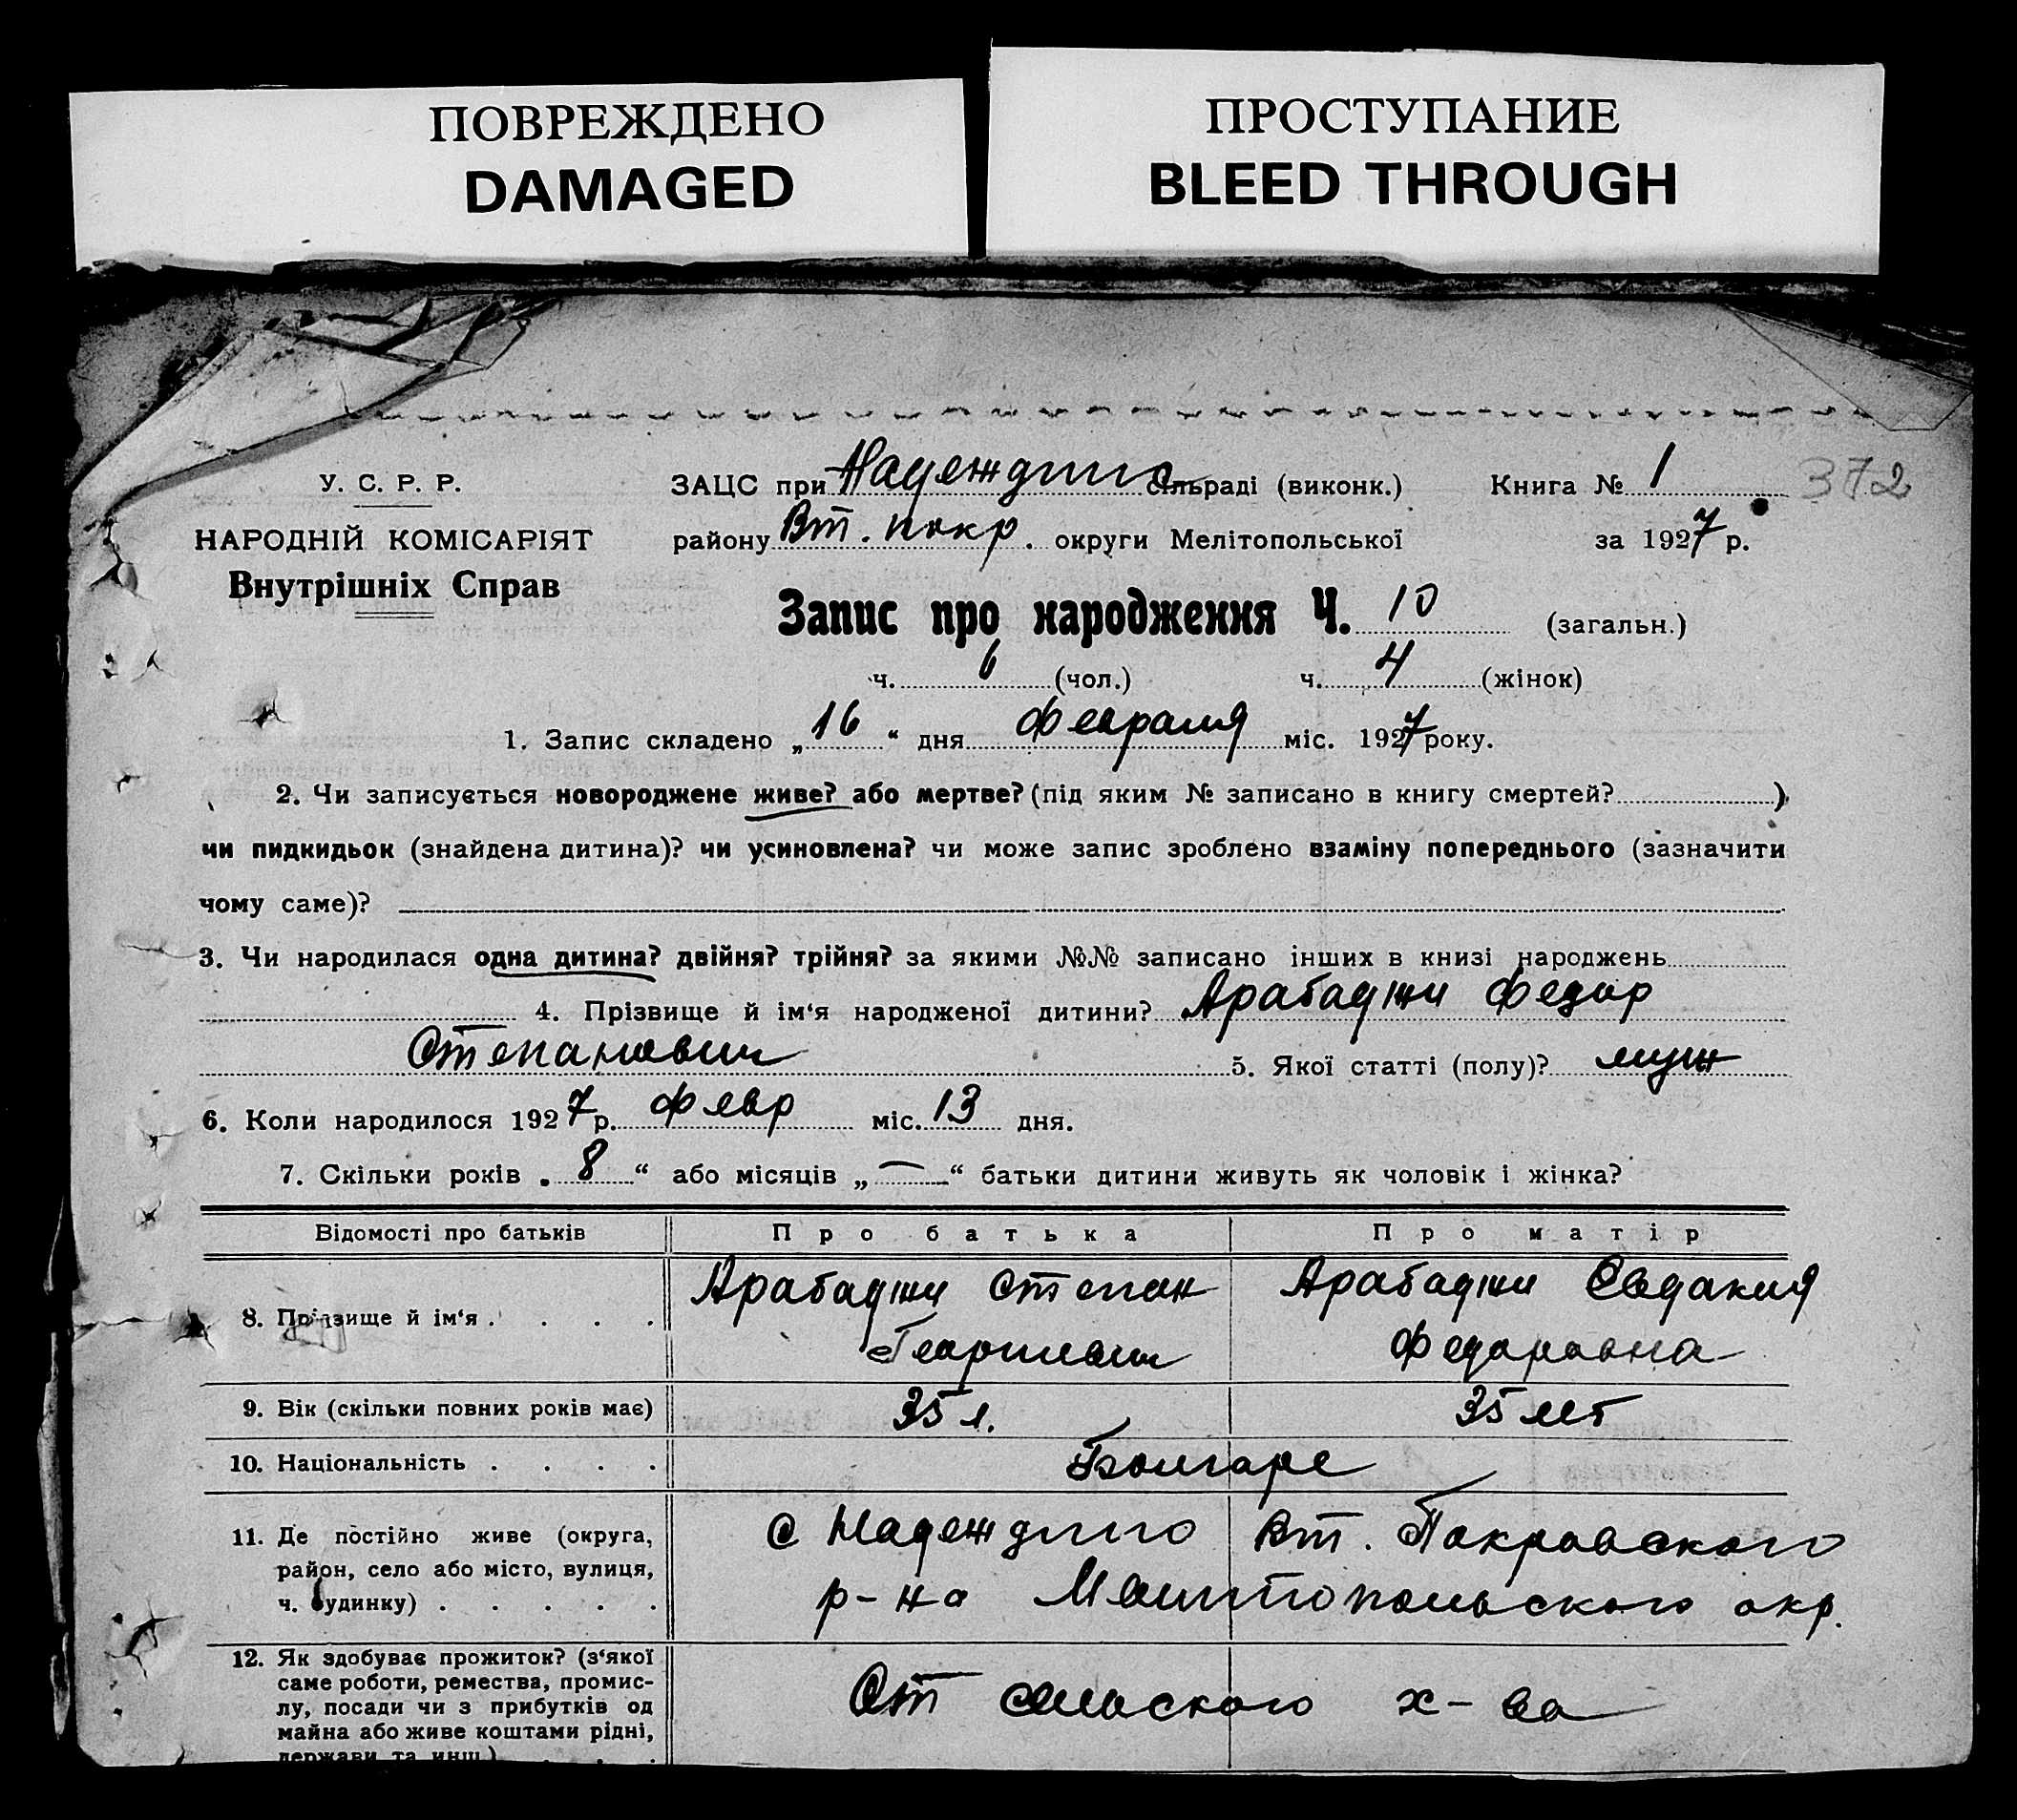 ПОВРЕЖДЕНО
DAMAGED
ПРОСТУПАНИЕ
BLEED THROUGH
У. С. Р. Р.
НАРОДНІЙ КОМІСАРІЯТ
Внутрішніх Справ
ЗАЦС при Надеждино сільраді (виконк.) Книга № 1 372
району Вт. покр. округи Мелітопольської за 1927 р.
Запис про народження Ч. 10 (загальн.)
ч. 6 (чол.) ч. 4 (жінок)
1. Запис складено „16“ дня Февраля міс. 1927 року.
2. Чи записується новороджене живе? або мертве? (під яким № записано в книгу смертей? )
чи пидкидьок (знайдена дитина)? чи усиновлена? чи може запис зроблено взаміну попереднього (зазначити
чому саме)?
3. Чи народилася одна дитина? двійня? трійня? за якими №№ записано інших в книзі народжень
4. Прізвище й ім‘я народженої дитини? Арабаджи Федор
Степанович 5. Якої статті (полу)? муж
6. Коли народилося 1927 р. Февр міс. 13 дня.
7. Скільки років „8“ або місяців „—“ батьки дитини живуть як чоловік і жінка?
Відомості про батьків Про батька Про матір
8. Прізвище й ім‘я . . . . Арабаджи Степан Арабаджи Евдакия
Георгиевич Федоровна
9. Вік (скільки повних років має) 35 л. 35 лет
10. Національність . . . . Болгаре
11. Де постійно живе (округа, район, село або місто, вулиця, ч. будинку) . . . . .
с Надеждино Вт. Покровского
р-на Мелитопольского окр.
12. Як здобуває прожиток? (з‘якої
саме роботи, ремества, промис-
лу, посади чи з прибутків од
майна або живе коштами рідні,
держави та инш.) . . .
От сельского х-ва